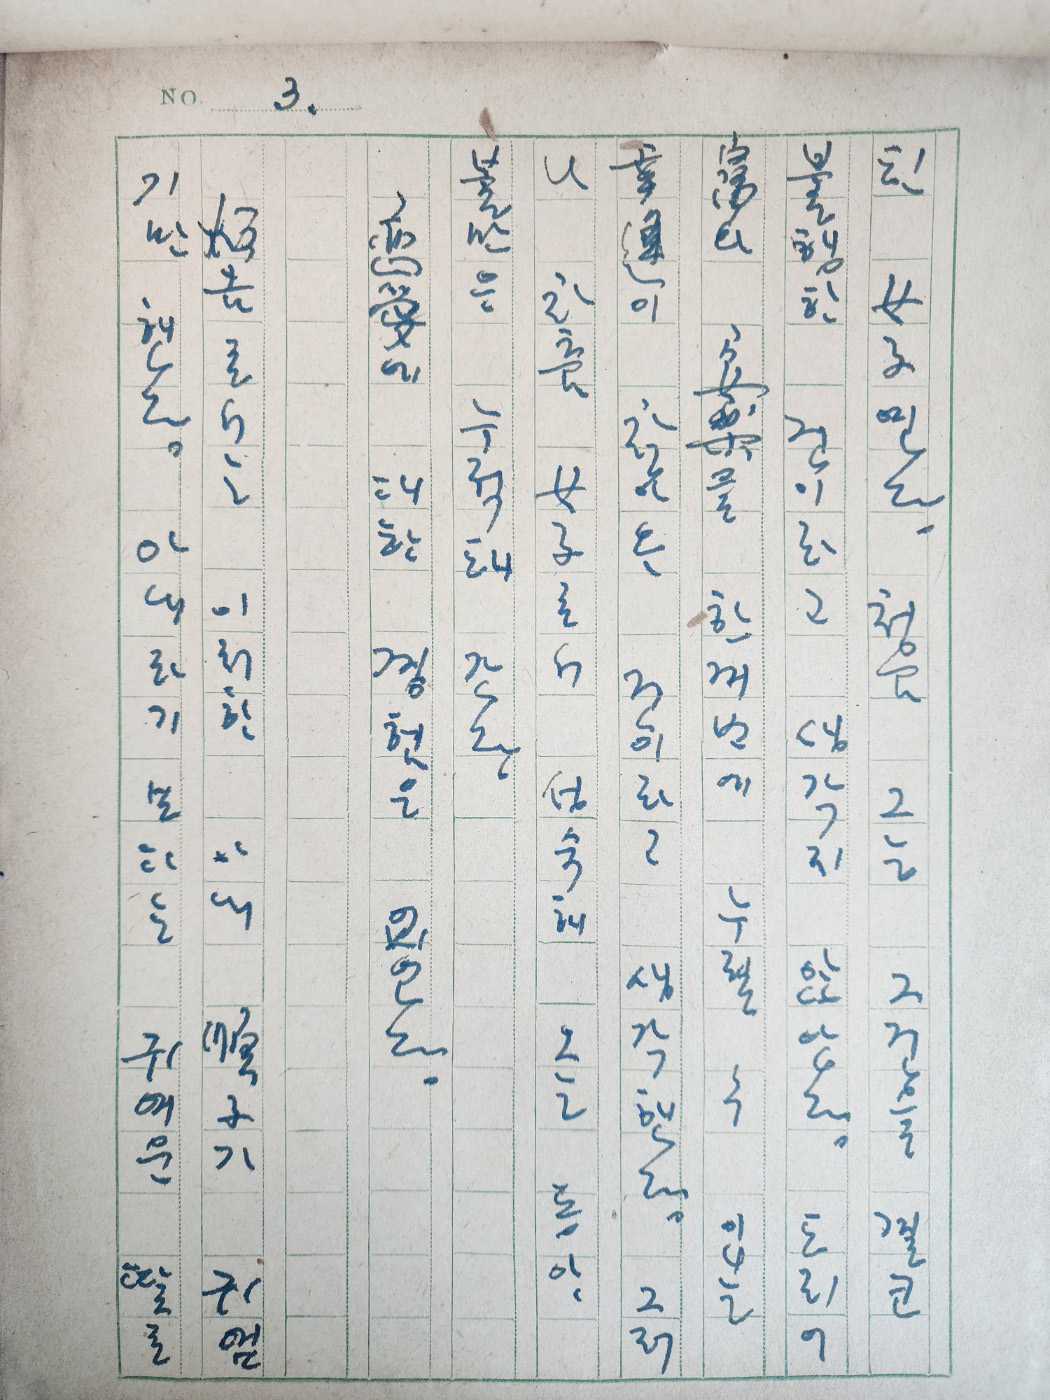 NO. 3.
된 女子였다. 청음 그는 그것을 결코
불행한 것이라고 생각지 않았다. 도리어
富와 를 한꺼번에 누릴 수 있는
幸運이 찾아온 것이라고 생각했다. 그러
나 한 女子로서 성숙해 오는 동안
불만은 누적돼 갔다.
愛에 대한 경험은 였다.
로서는 이러한 아내 順子가 귀엽
기만 했다. 아내라기 보다는 귀여운 딸로